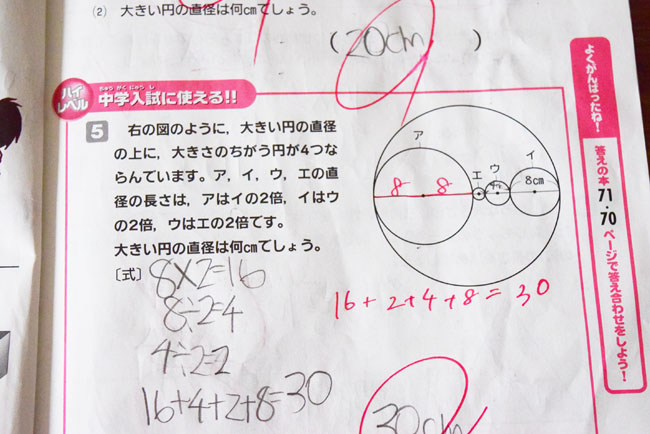 (2) 大きい円の直径は何cmでしょう。
(20cm)
ハイレベル
ちゅう がく にゅう し
中学入試に使える!!
5 右の図のように，大きい円の直径
の上に，大きさのちがう円が4つな
らんでいます。ア，イ，ウ，エの直
径の長さは，アはイの2倍，イはウ
の2倍，ウはエの2倍です。
大きい円の直径は何cmでしょう。
〔式〕
8×2=16
8÷2=4
4÷2=2
16+4+2+8=30
ア
エ
ウ
イ
8
8
8cm
16+2+4+8=30
30cm
よくがんばったね！
答えの本71・70ページで答え合わせをしよう！